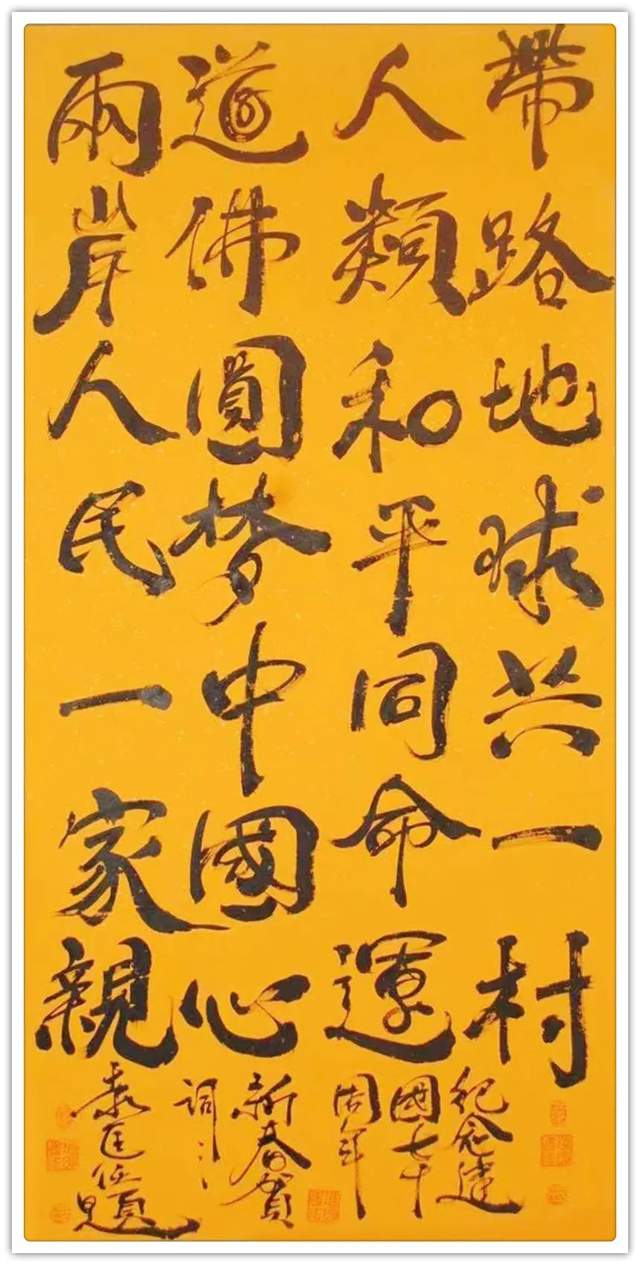 帶路地球共一村
人類和平同命運
道佛圓梦中國心
兩岸人民一家親
紀念建
國七十
周年
新春賀
詞之
題